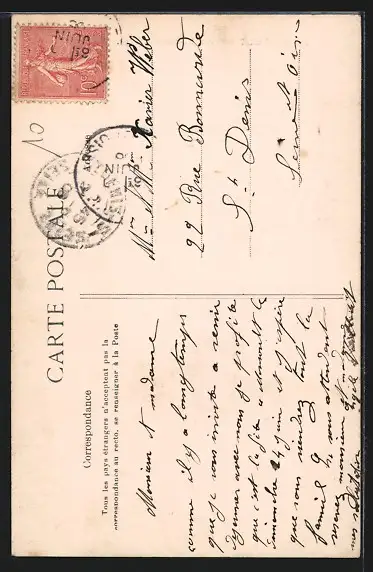 CARTE POSTALE
Correspondance
Tous les pays étrangers n'acceptent pas la
correspondance au recto, se renseigner à la Poste
Monsieur et Madame
comme il y a longtemps
que je vous invite a venir
dejeuner avec nous je profite
que c'est la fête
dimanche 24 juin et j'espère
que vous viendrez tout la
famill
vous attendant
recevez monsieur et
mes
Adresse
Mr et Mme Xavier Weber
22 Rue Bonnevide
St Denis
Seine et Oise
10